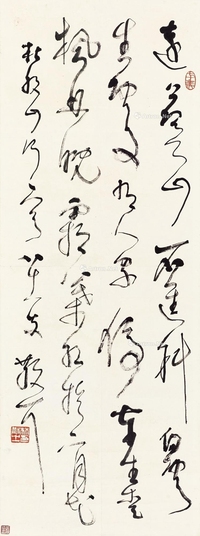 遠上寒山石徑斜白雲
生處有人家停車坐愛
楓林晚霜葉紅於二月花
杜牧山行 散耳